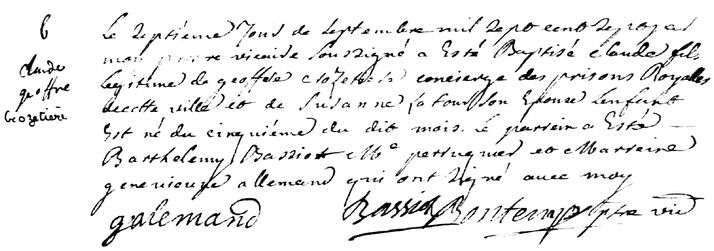 B
Claude
geoffre
Le septième jour de septembre mil sept cent
moy vicaire soussigné a Esté Baptisé claude fils
legitime de geoffre concierge des prisons Royalles
decette ville et de Susanne la tour son Epouse Lenfant
Est né du cinquième du dit mois. Le parrein a Esté
Barthelemy Bassiot Me perruquier et Marreine
genevieuve allemand qui ont signé avec moy
galemand Bontemps ptre vic